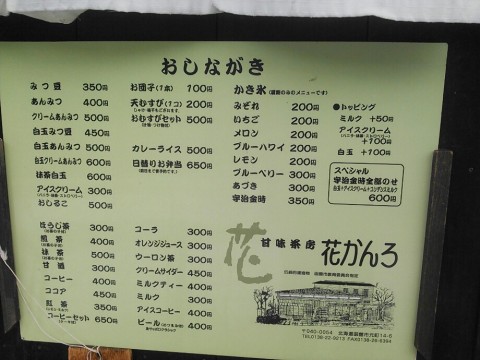 おしながき
みつ豆 350円
あんみつ 400円
クリームあんみつ 500円
白玉みつ豆 450円
白玉あんみつ 500円
白玉クリームあんみつ 600円
抹茶白玉 600円
アイスクリーム 300円
おしるこ 500円
ほうじ茶 300円
煎茶 400円
抹茶 500円
甘酒 300円
コーヒー 400円
ココア 450円
紅茶 400円
コーヒーセット 650円
お団子(1本) 100円
天むすび(1コ) 200円
おむすびセット 500円
カレーライス 500円
日替りお弁当 650円
コーラ 300円
オレンジジュース 300円
ウーロン茶 300円
クリームサイダー 450円
ミルクティー 400円
ミルク 300円
アイスコーヒー 400円
ビール 450円
かき氷(夏期のみのメニューです)
みぞれ 200円
いちご 200円
メロン 200円
ブルーハワイ 200円
レモン 200円
ブルーベリー 300円
あづき 300円
宇治金時 350円
●トッピング
ミルク +50円
アイスクリーム
+100円
白玉 +100円
スペシャル
宇治金時全部のせ
白玉+アイスクリーム+コンデンスミルク
600円
花
甘味茶房 花かんろ
〒040-0054 北海道函館市元町14-6